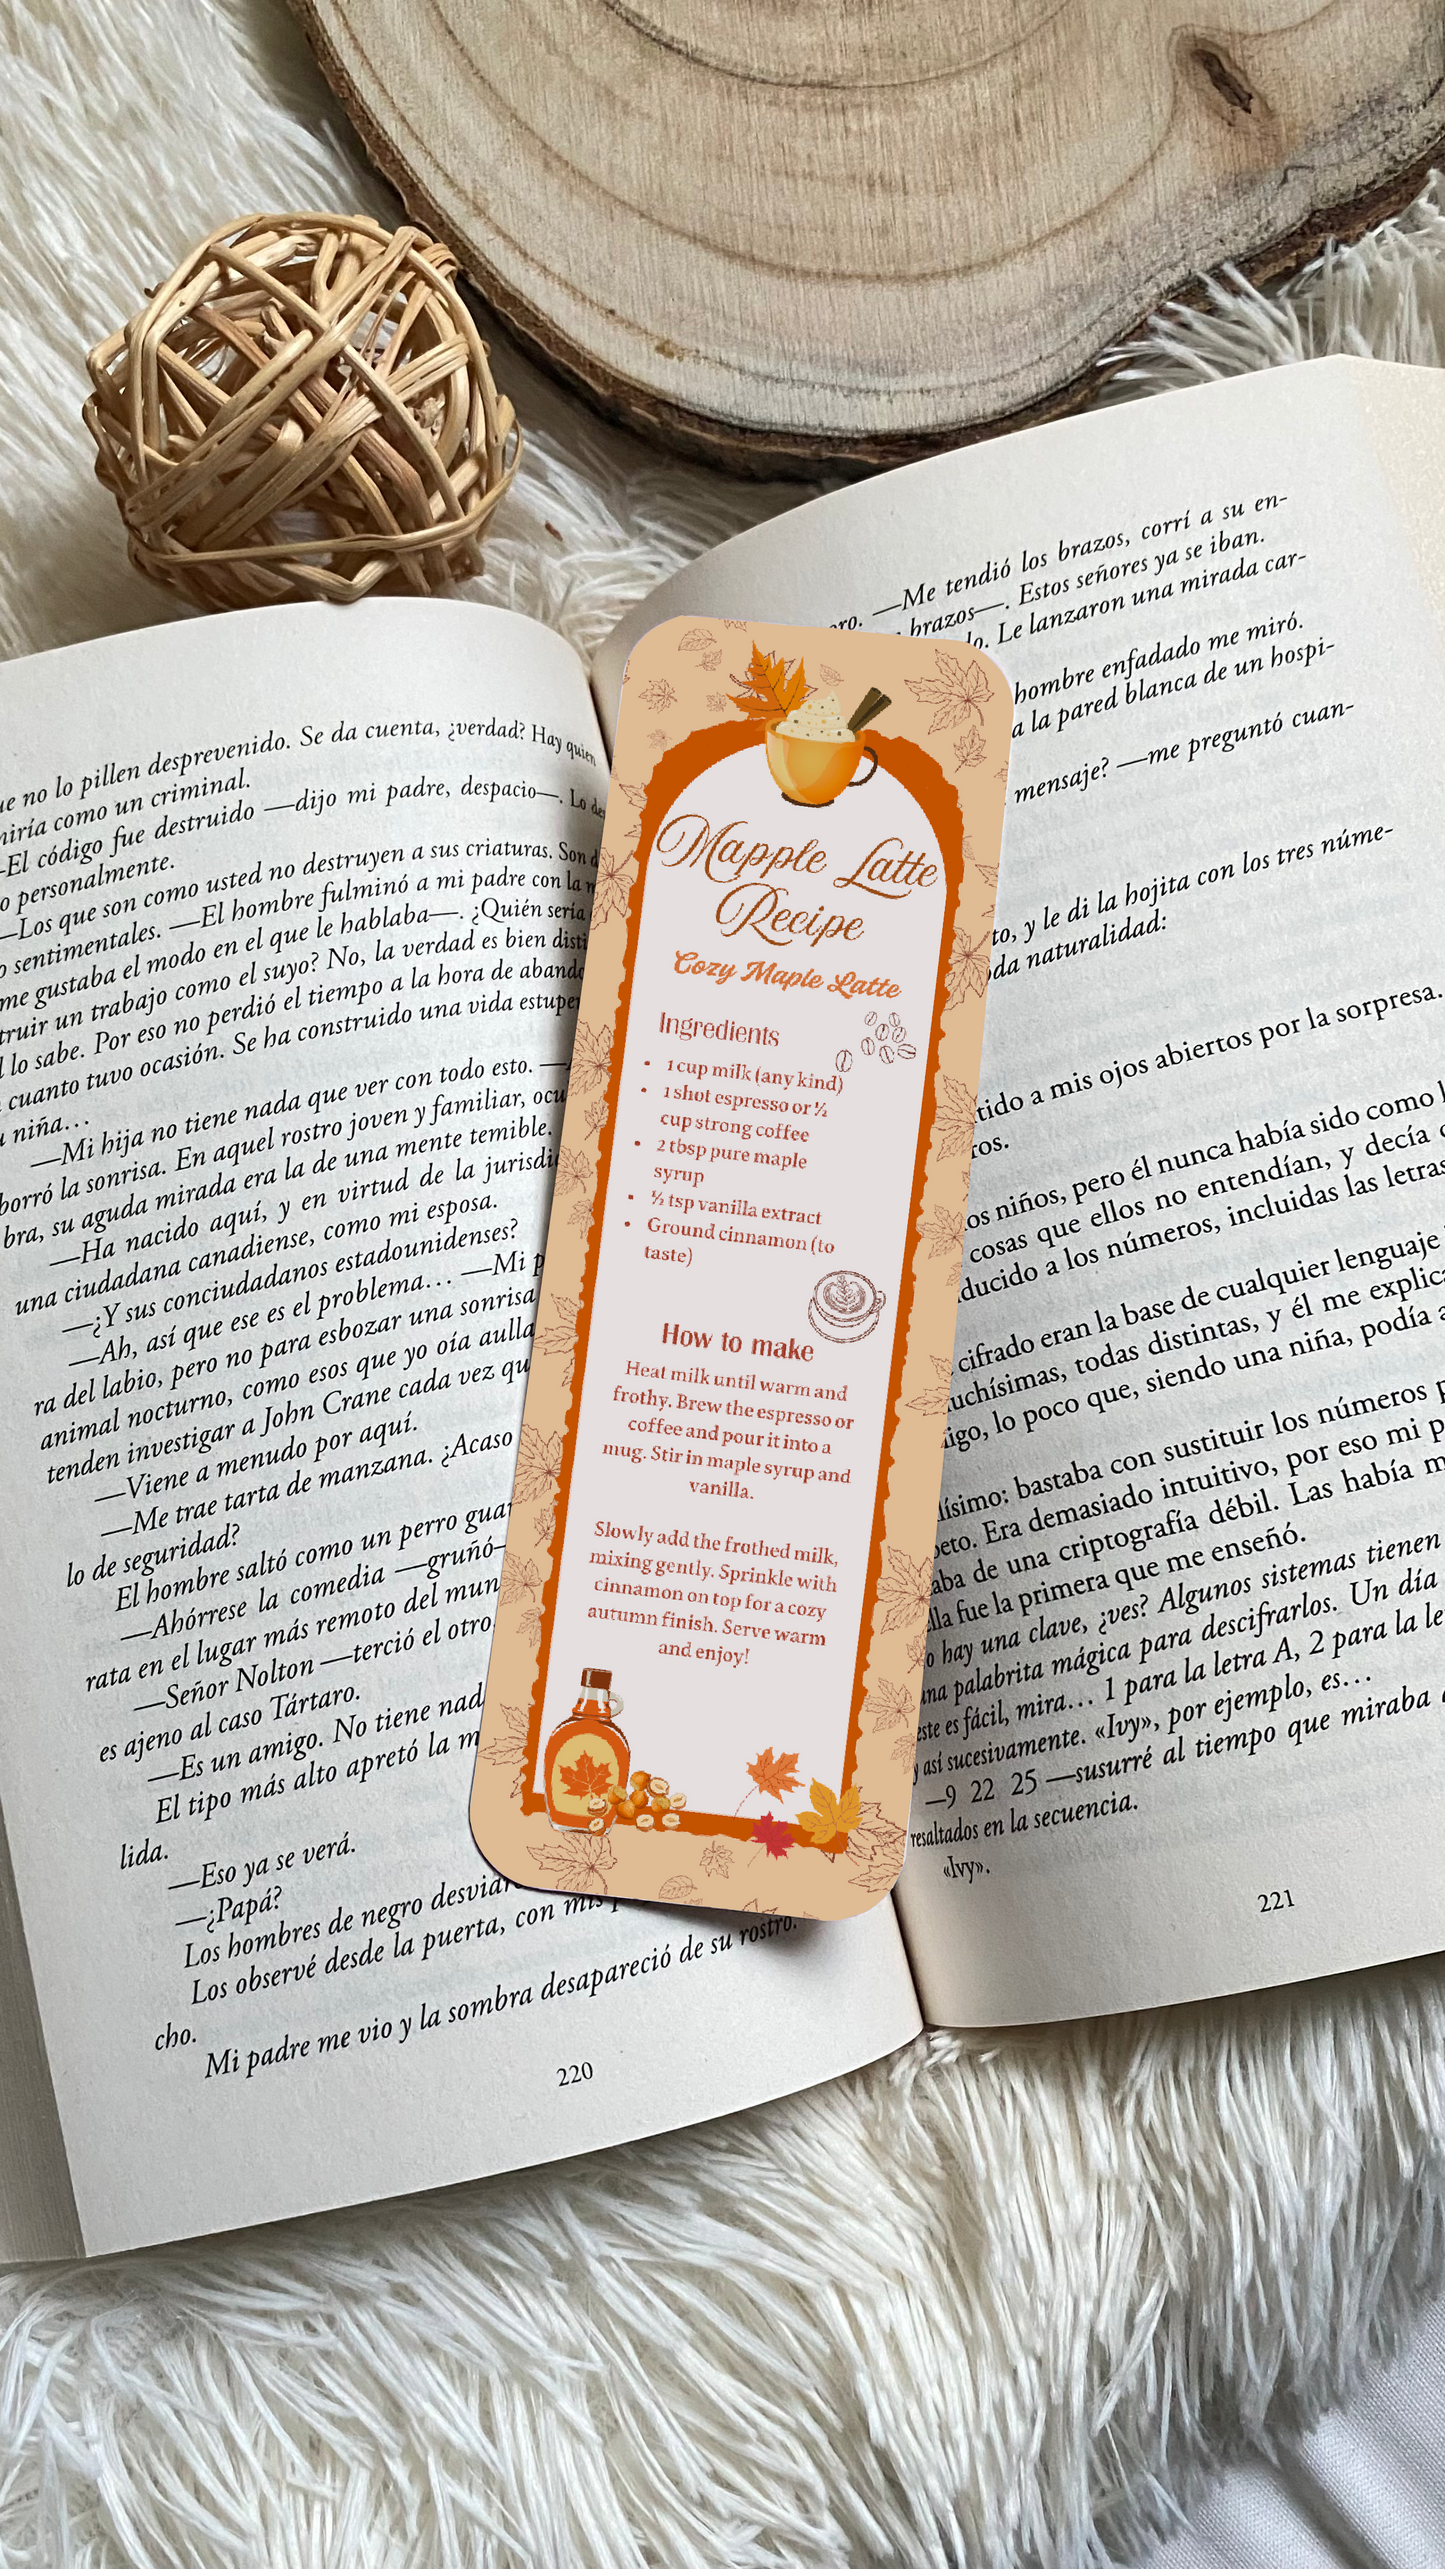 ue no lo pillen desprevenido. Se da cuenta, ¿verdad? Hay quien
niría como un criminal.
-El código fue destruido —dijo mi padre, despacio—. Lo
o personalmente.
—Los que son como usted no destruyen a sus criaturas. Son
o sentimentales. —El hombre fulminó a mi padre con la
me gustaba el modo en el que le hablaba—. ¿Quién sería
truir un trabajo como el suyo? No, la verdad es bien disti
l lo sabe. Por eso no perdió el tiempo a la hora de aband
cuanto tuvo ocasión. Se ha construido una vida estupe
niña…
—Mi hija no tiene nada que ver con todo esto. —
borró la sonrisa. En aquel rostro joven y familiar, ocu
bra, su aguda mirada era la de una mente temible.
—Ha nacido aquí, y en virtud de la jurisdi
una ciudadana canadiense, como mi esposa.
—¿Y sus conciudadanos estadounidenses?
—Ah, así que ese es el problema… —Mi p
ra del labio, pero no para esbozar una sonrisa
animal nocturno, como esos que yo oía aulla
tenden investigar a John Crane cada vez qu
—Viene a menudo por aquí.
—Me trae tarta de manzana. ¿Acaso
lo de seguridad?
El hombre saltó como un perro guar
—Ahórrese la comedia —gruñó—
rata en el lugar más remoto del mun
—Señor Nolton —terció el otro.
es ajeno al caso Tártaro.
—Es un amigo. No tiene nad
El tipo más alto apretó la m
lida.
—Eso ya se verá.
—¿Papá?
Los hombres de negro desviar
Los observé desde la puerta, con mis
cho.
Mi padre me vio y la sombra desapareció de su rostro.
220
Mapple Latte
Recipe
Cozy Maple Latte
Ingredients
• 1 cup milk (any kind)
• 1 shot espresso or ½
cup strong coffee
• 2 tbsp pure maple
syrup
• ½ tsp vanilla extract
• Ground cinnamon (to
taste)
How to make
Heat milk until warm and
frothy. Brew the espresso or
coffee and pour it into a
mug. Stir in maple syrup and
vanilla.
Slowly add the frothed milk,
mixing gently. Sprinkle with
cinnamon on top for a cozy
autumn finish. Serve warm
and enjoy!
ero. —Me tendió los brazos, corrí a su en-
brazos—. Estos señores ya se iban.
do. Le lanzaron una mirada car-
hombre enfadado me miró.
a la pared blanca de un hospi-
mensaje? —me preguntó cuan-
to, y le di la hojita con los tres núme-
oda naturalidad:
tido a mis ojos abiertos por la sorpresa.
ros.
os niños, pero él nunca había sido como
cosas que ellos no entendían, y decía
ducido a los números, incluidas las letras
cifrado eran la base de cualquier lenguaje
uchísimas, todas distintas, y él me explic
igo, lo poco que, siendo una niña, podía a
lísimo: bastaba con sustituir los números p
peto. Era demasiado intuitivo, por eso mi p
aba de una criptografía débil. Las había m
lla fue la primera que me enseñó.
o hay una clave, ¿ves? Algunos sistemas tienen
una palabrita mágica para descifrarlos. Un día
este es fácil, mira… 1 para la letra A, 2 para la le
y así sucesivamente. «Ivy», por ejemplo, es…
—9 22 25 —susurré al tiempo que miraba
resaltados en la secuencia.
«Ivy».
221